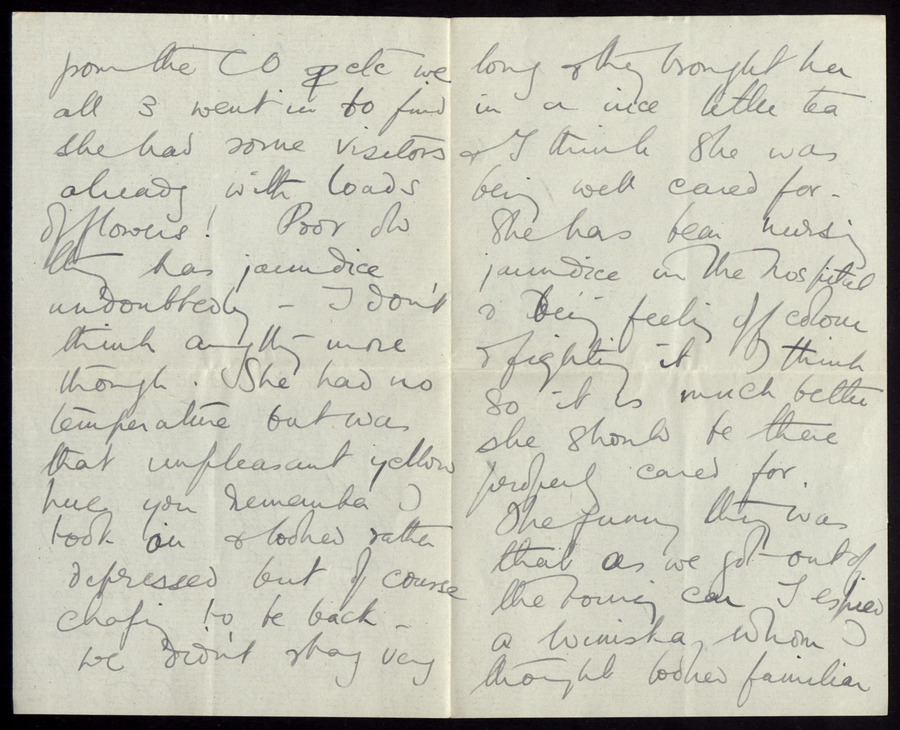 from the CO & etc we
all 3 went in to find
she had some visitors
already with loads
of flowers! Poor old
thing has jaundice
undoubtedly – I don't
think anything more
though. She had no
temperature but was
that unpleasant yellow
hue you remember I
took on & looked rather
depressed but of course
chafing to be back –
we didn't stay very
long & they brought her
in a nice little tea
& I think she was
being well cared for –
She has been nursing
jaundice in the hospital
& being feeling off colour
& fighting it I think
so it is much better
she should be there
properly cared for.
The funny thing was
that as we got out of
the touring car I espied
a whom I
thought looked familiar